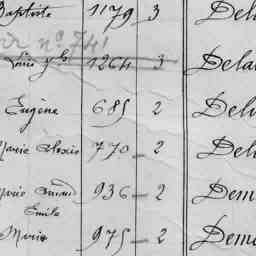 Baptiste 1179 3 Del
voir n° 741
Louis 1264 3 Dela
Eugène 685 2 Del
Marie Alexis 770 2 Del
936 2 Dem
Emile
Marie 975 2 Deme